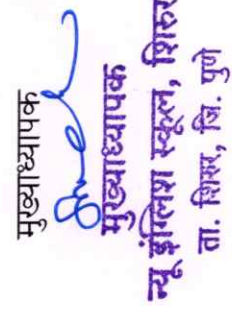 मुख्याध्यापक
मुख्याध्यापक
न्यू इंग्लिश स्कूल, शिरूर
ता. शिरूर, जि. पुणे